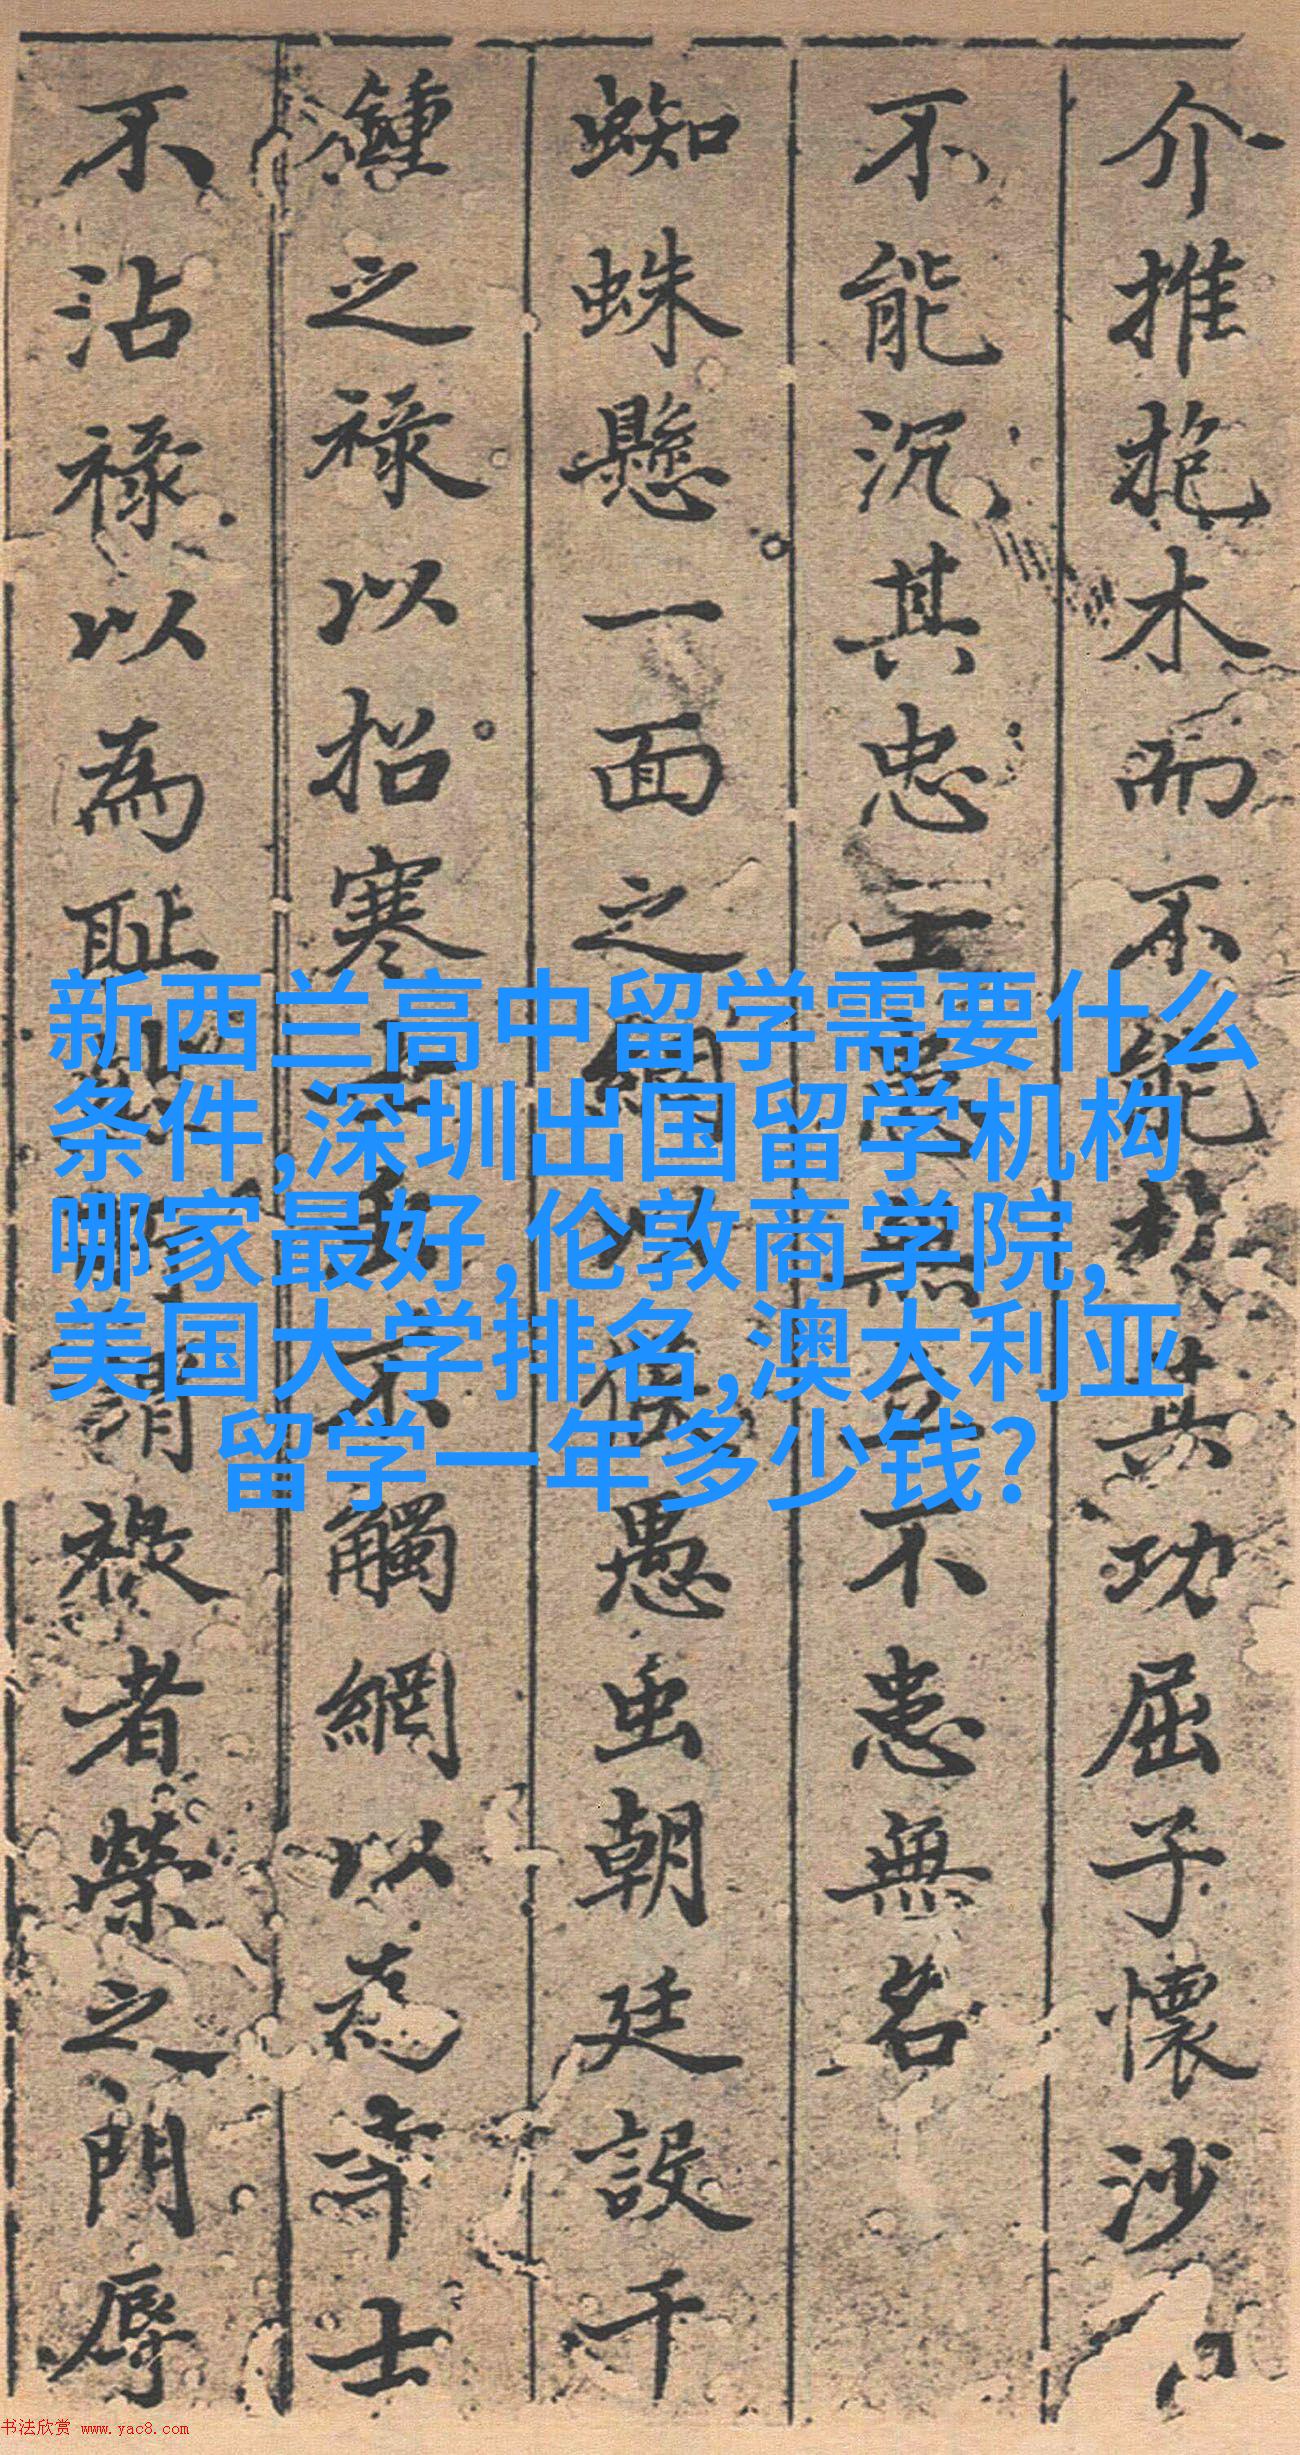 介推抱木而不能朽其功屈子懷沙
不能沉其忠士患無立不患無名
蜘蛛懸一面之網以愚虫朝廷設千
鍾之祿以招寒士不觸網以為幸士
不沾祿以為恥謂祿者榮之門辱
新西兰高中留学需要什么
条件,深圳出国留学机构
哪家最好,伦敦商学院,
美国大学排名,澳大利亚
留学一年多少钱?
书法欣赏 www.yac8.com